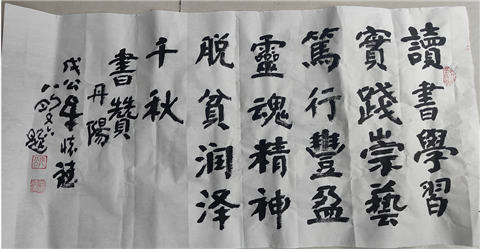 讀書學習
實踐崇藝
篤行豐盈
靈魂精神
脫貧润泽
千秋
書讚
丹陽